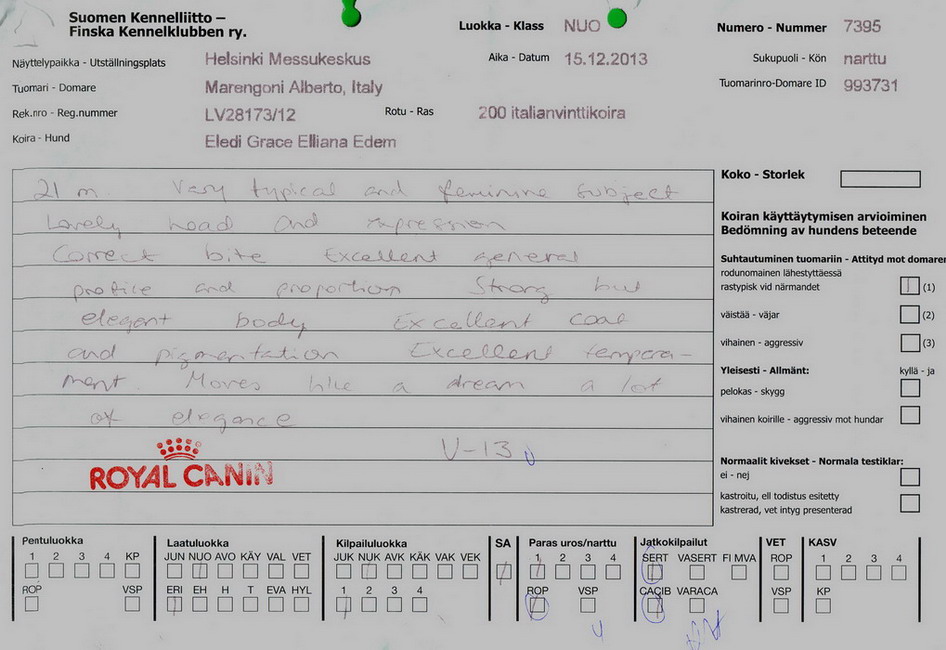 Suomen Kennelliitto –
Finska Kennelklubben ry.
Luokka - Klass NUO
Numero - Nummer 7395
Näyttelypaikka - Utställningsplats Helsinki Messukeskus
Aika - Datum 15.12.2013
Sukupuoli - Kön narttu
Tuomari - Domare Marengoni Alberto, Italy
Tuomarinro-Domare ID 993731
Rek.nro - Reg.nummer LV28173/12
Rotu - Ras 200 italianvinttikoira
Koira - Hund Eledi Grace Elliana Edem
21 m. Very typical and feminine subject
Lovely head and expression
Correct bite Excellent general
profile and proportion Strong but
elegant body Excellent coat
and pigmentation Excellent tempera-
ment. Moves like a dream a lot
of elegance
V-13
ROYAL CANIN
Koko - Storlek
Koiran käyttäytymisen arvioiminen
Bedömning av hundens beteende
Suhtautuminen tuomariin - Attityd mot domaren
rodunomainen lähestyttäessä
rastypisk vid närmandet (1)
väistää - väjar (2)
vihainen - aggressiv (3)
Yleisesti - Allmänt: kyllä - ja
pelokas - skygg
vihainen koirille - aggressiv mot hundar
Normaalit kivekset - Normala testiklar:
ei - nej
kastroitu, ell todistus esitetty
kastrerad, vet intyg presenterad
Pentuluokka
1 2 3 4 KP
ROP VSP
Laatuluokka
JUN NUO AVO KÄY VAL VET
ERI EH H T EVA HYL
Kilpailuluokka
JUK NUK AVK KÄK VAK VEK
1 2 3 4
SA
Paras uros/narttu
1 2 3 4
ROP VSP
Jatkokilpailut
SERT VASERT FI MVA
CACIB VARACA
VET
ROP
VSP
KASV
1 2 3 4
KP